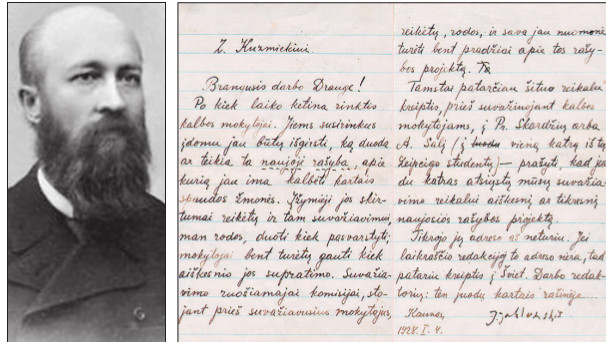 Z. Kuzmickiui.
Brangusis darbo Drauge!
Po kiek laiko ketina rinktis
kalbos mokytojai. Jiems susirinkus
įdomu jau būtų išgirsti, ką duoda
ar teikia ta naujoji rašyba, apie
kurią jau ima kalbėt kartais
spaudos žmonės. Žymieji jos skir-
tumai reikėtų ir tam suvažiavimui,
man rodos, duoti kiek pasvarstyti;
mokytojai bent turėtų gauti kiek
aiškesnio jos supratimo. Suvažia-
vimo ruošiamajai komisijai, sto-
jant prieš suvažiavusius mokytojus,
reikėtų, rodos, ir savą jau nuomonę
turėti bent pradžiai apie tos rašy-
bos projektą.
Tamstai patarčiau šituo reikalu
kreiptis, prieš suvažiuojant kalbos
mokytojams, į Pr. Skardžių arba
A. Salį (į vieną katrą iš tų
Leipcigo studentų) — prašyti, kad juo-
du katras atsiųstų mūsų suvažia-
vimo reikalui aiškesnį ar tikresnį
naujosios rašybos projektą.
Tikrojo jų adreso aš neturiu. Jei
laikraščio redakcijoj to adreso nėra, tad
patariu kreiptis į Šviet. Darbo redak-
torių: ten juodu kartais rašinėja...
Kaunas,
1928. I. 4.